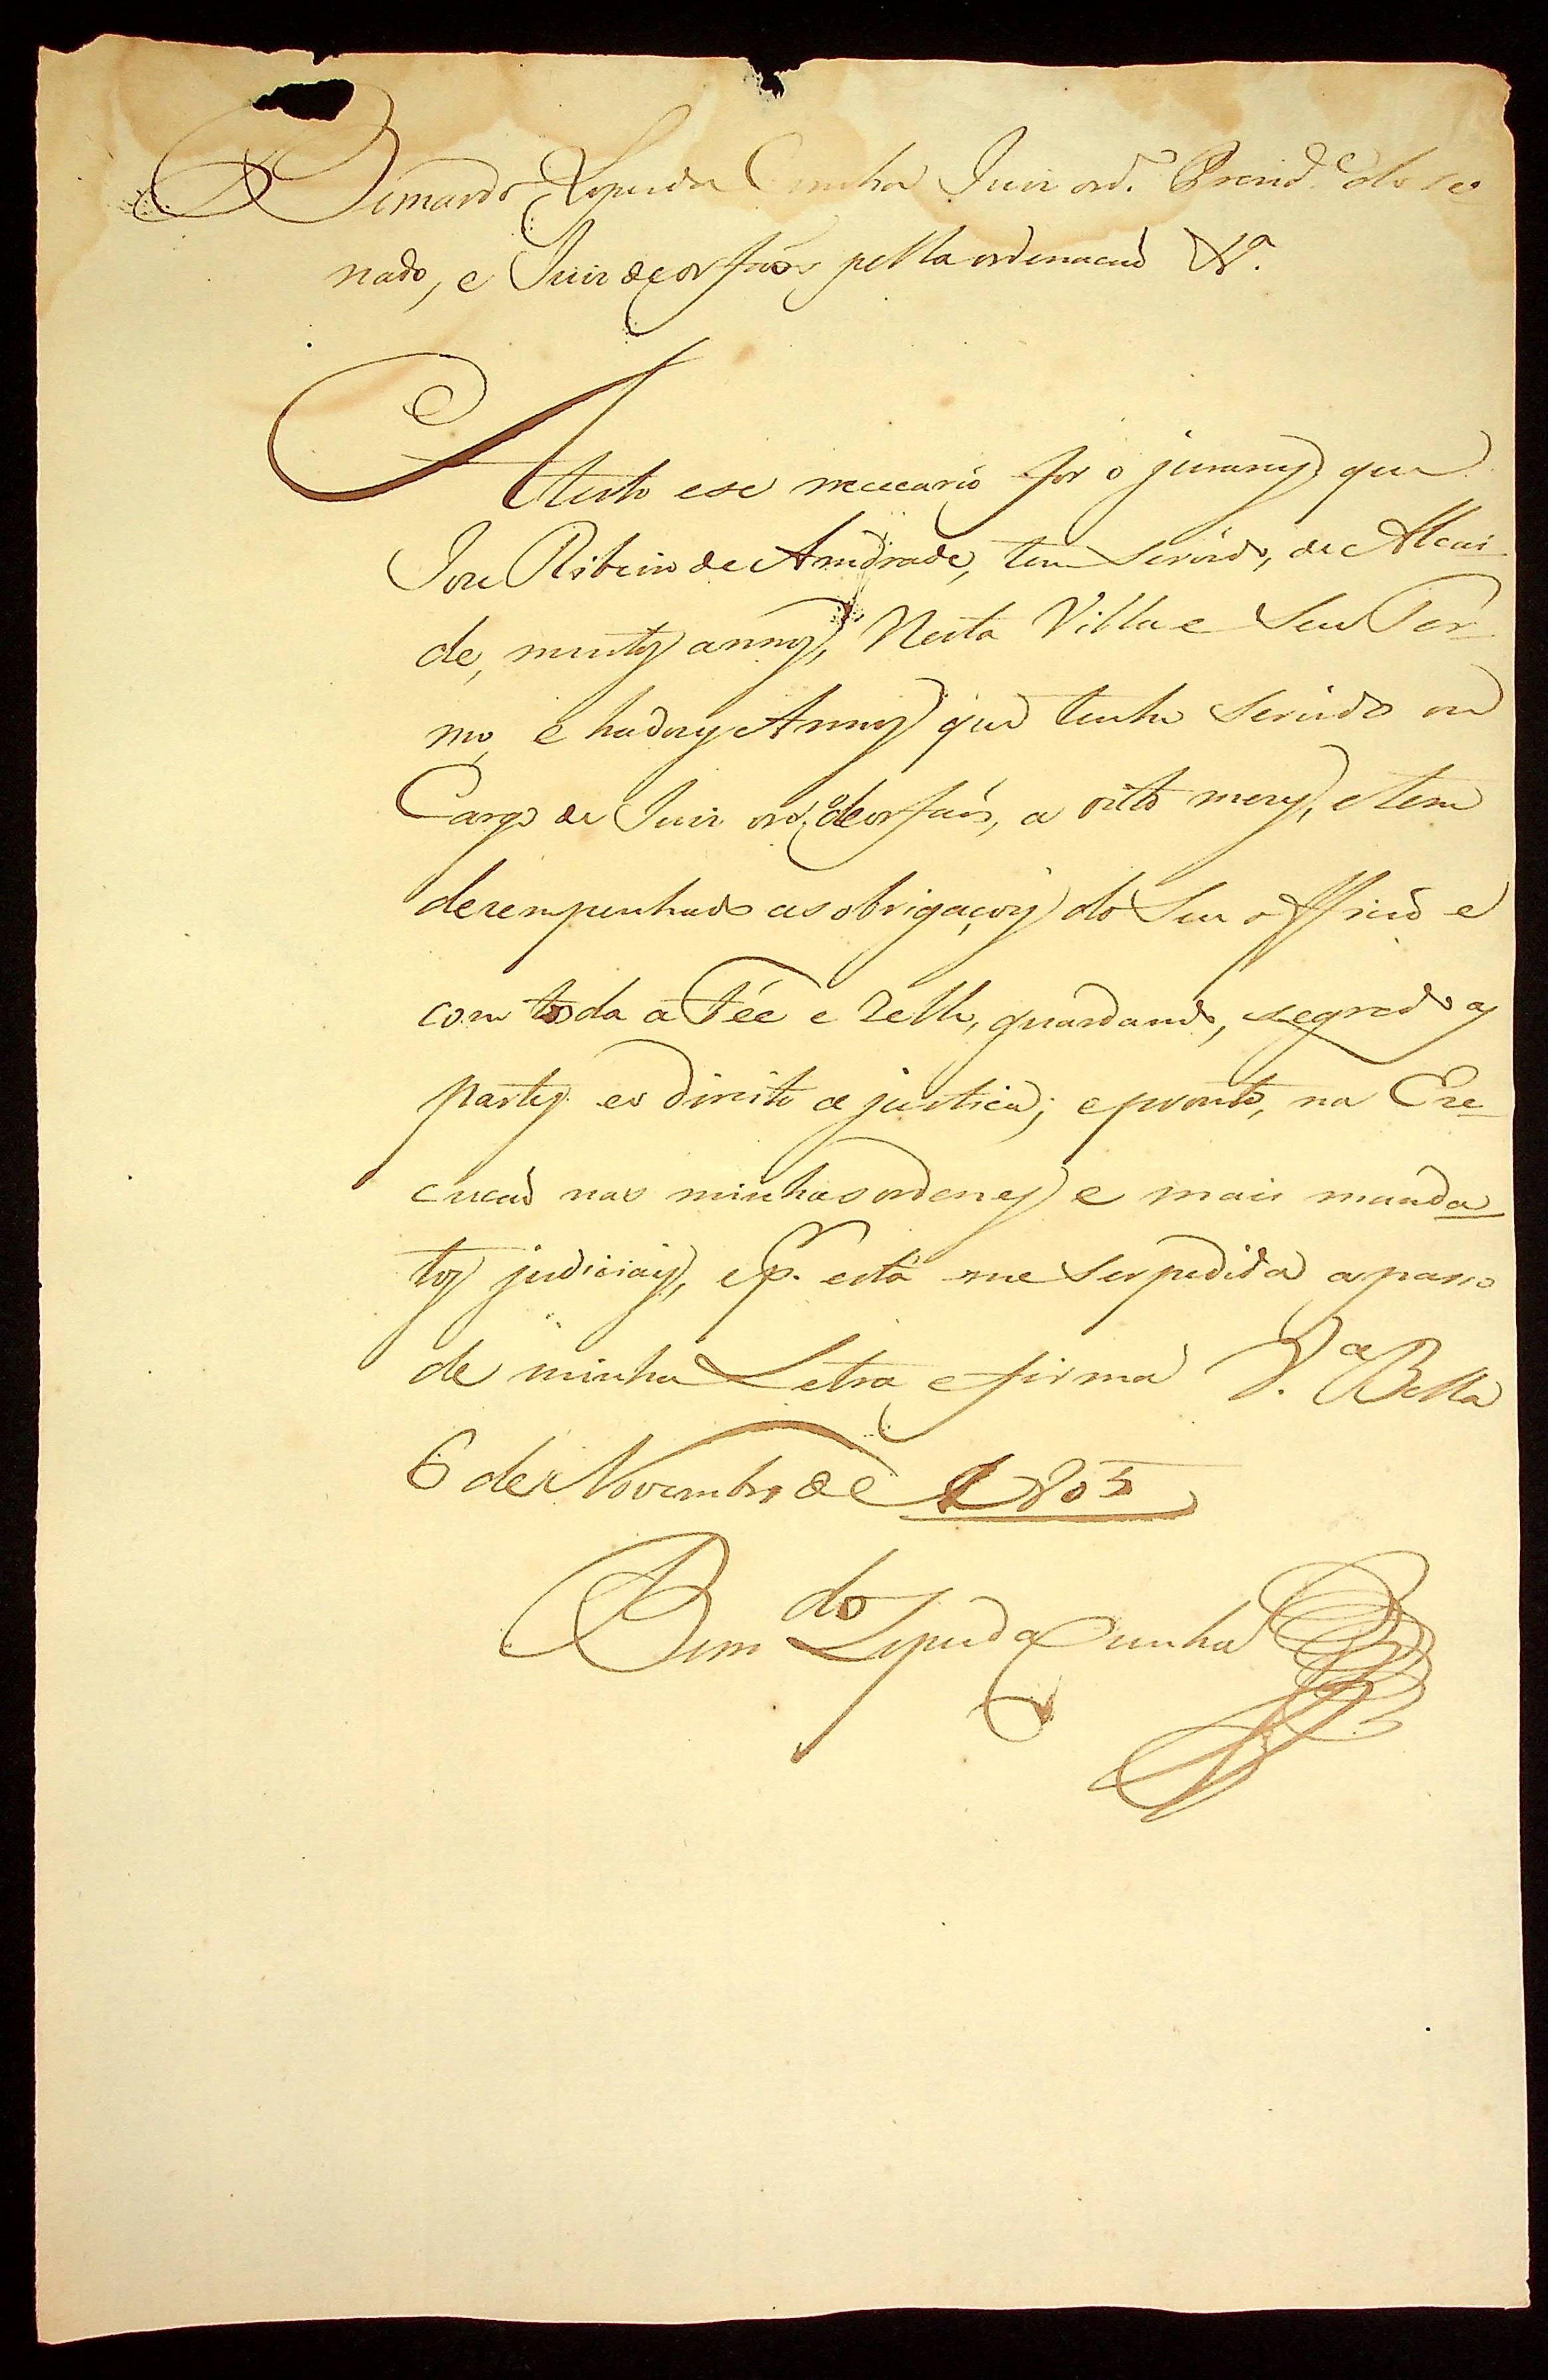 Bernardo Lopes da Cunha Juiz ord.º Prezid.e do Se
nado, e Juiz de orfaõs pella ordenacaõ &.ª
Atesto e se nececario for o juramy que
Joze Ribeiro de Amdrade, tem Servido, de Alcai
de, muitos annos, Nesta Villa e Seu Ter
mo, e ha dois Annos que tenho Servido no
Cargo de Juiz ord.º de orfaõs, a oito mezes, e tem
dezempenhado as obrigaçois do Seu officio e
com toda a Fée e Zello, guardando, segredo as
partes e o direito a justica; e pronto, na Eze
cucaõ nas minhas ordenes e mais manda
tos judiciais, e p. esta me ser pedida a passo
de minha Letra e firma V.ª Bella
6 de Novembro de 1805
Bern.do Lopes da Cunha